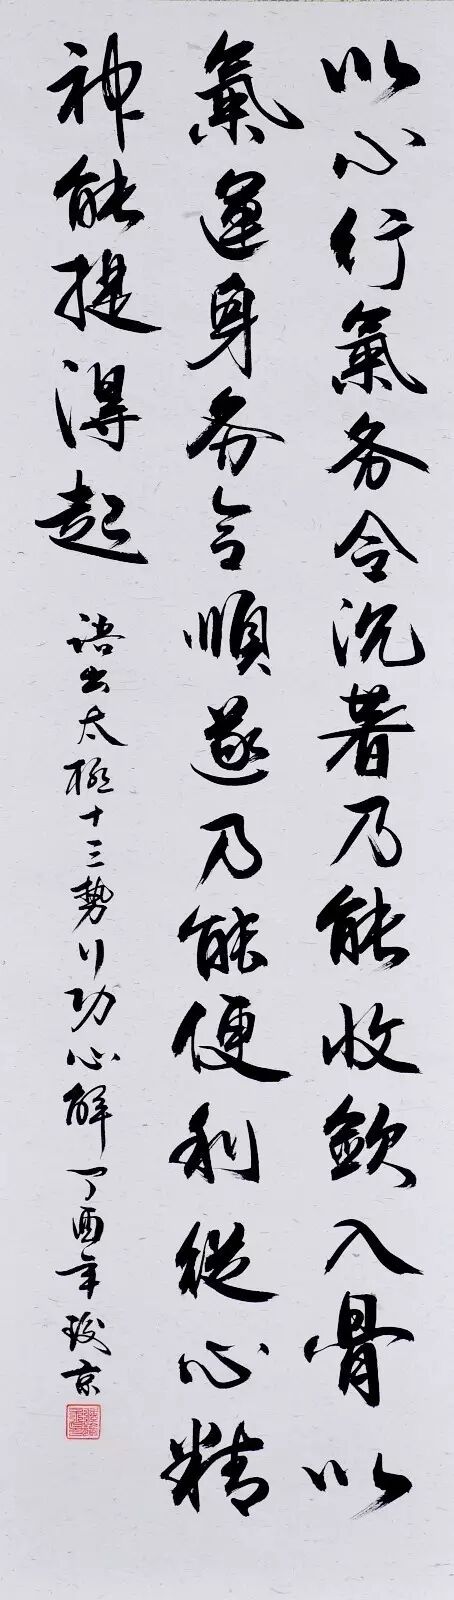 以心行氣务令沉著乃能收歛入骨以
氣運身务令順遂乃能便利從心精
神能提得起 語出太極十三勢行功心解 丁酉年 京